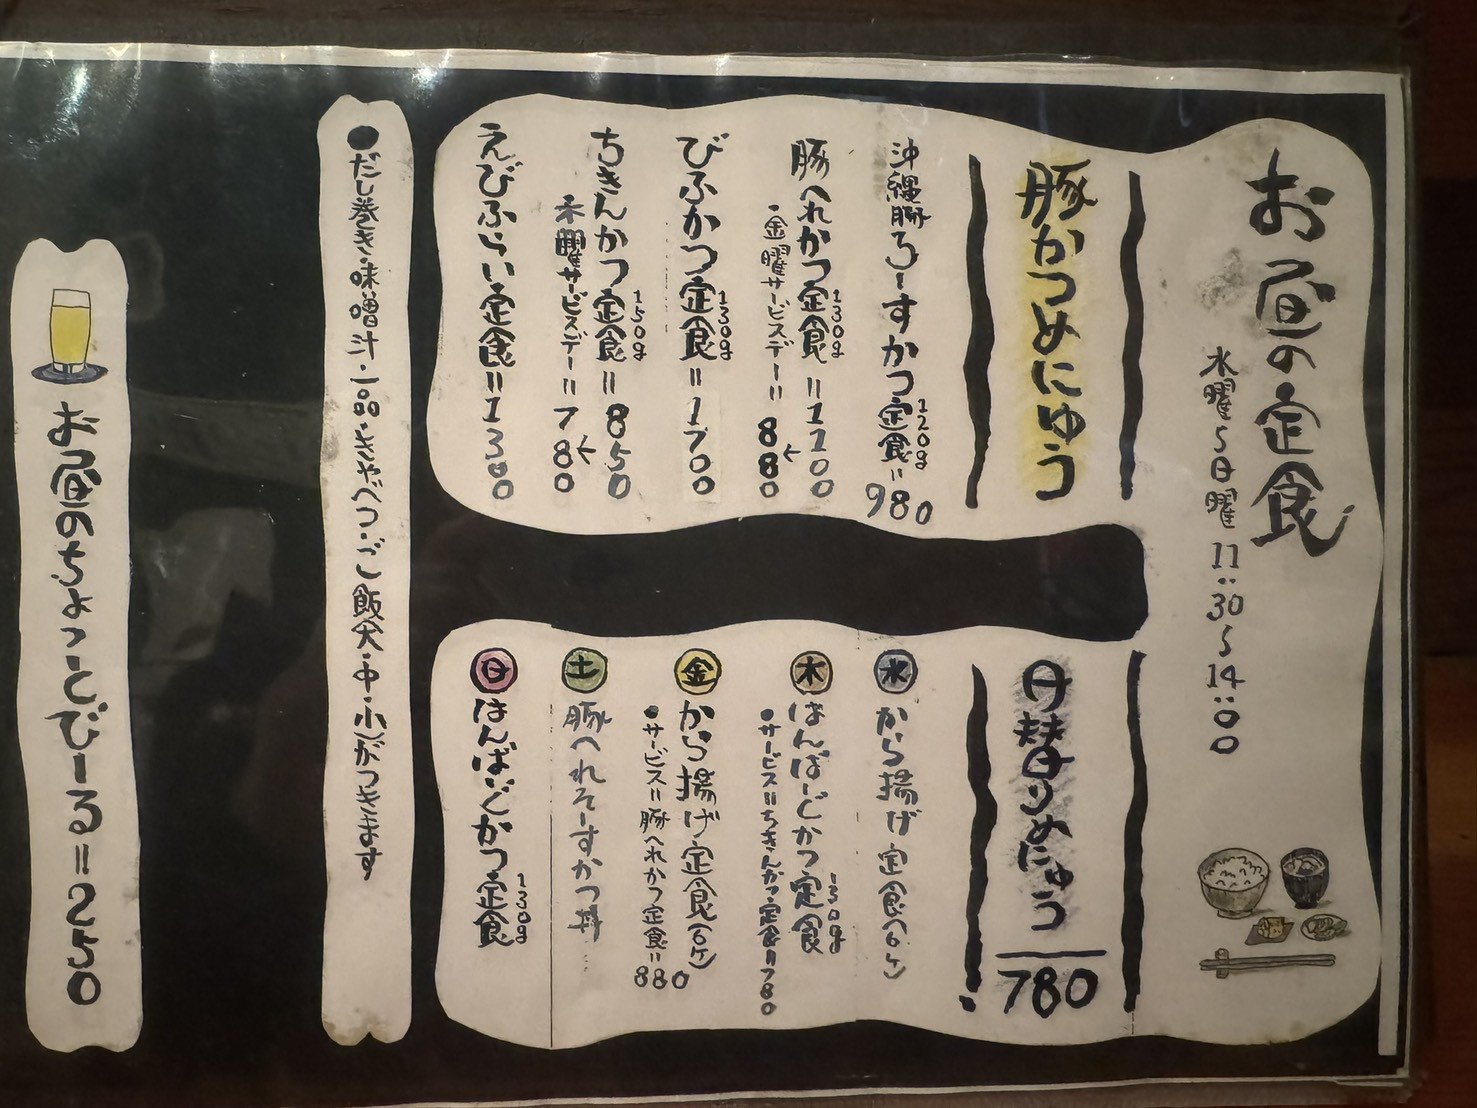 お昼の定食
水曜〜日曜 11:30〜14:00
豚かつめにゅう
沖縄豚ろーすかつ定食 120g = 980
豚へれかつ定食 130g = 1100
金曜サービスデー = 880
びふかつ定食 130g = 1700
ちきんかつ定食 150g = 850
木曜サービスデー = 780
えびふらい定食 = 1300
日替りめにゅう 780
水 から揚げ定食(6ケ)
木 はんばーぐかつ定食 130g
●サービス=ちきんかつ定食=780
金 から揚げ定食(6ケ)
●サービス=豚へれかつ定食=880
土 豚へれそーすかつ丼
日 はんばーぐかつ定食 130g
●だし巻き・味噌汁・一品・きゃべつ・ご飯(大・中・小)がつきます
お昼のちょっとびーる=250